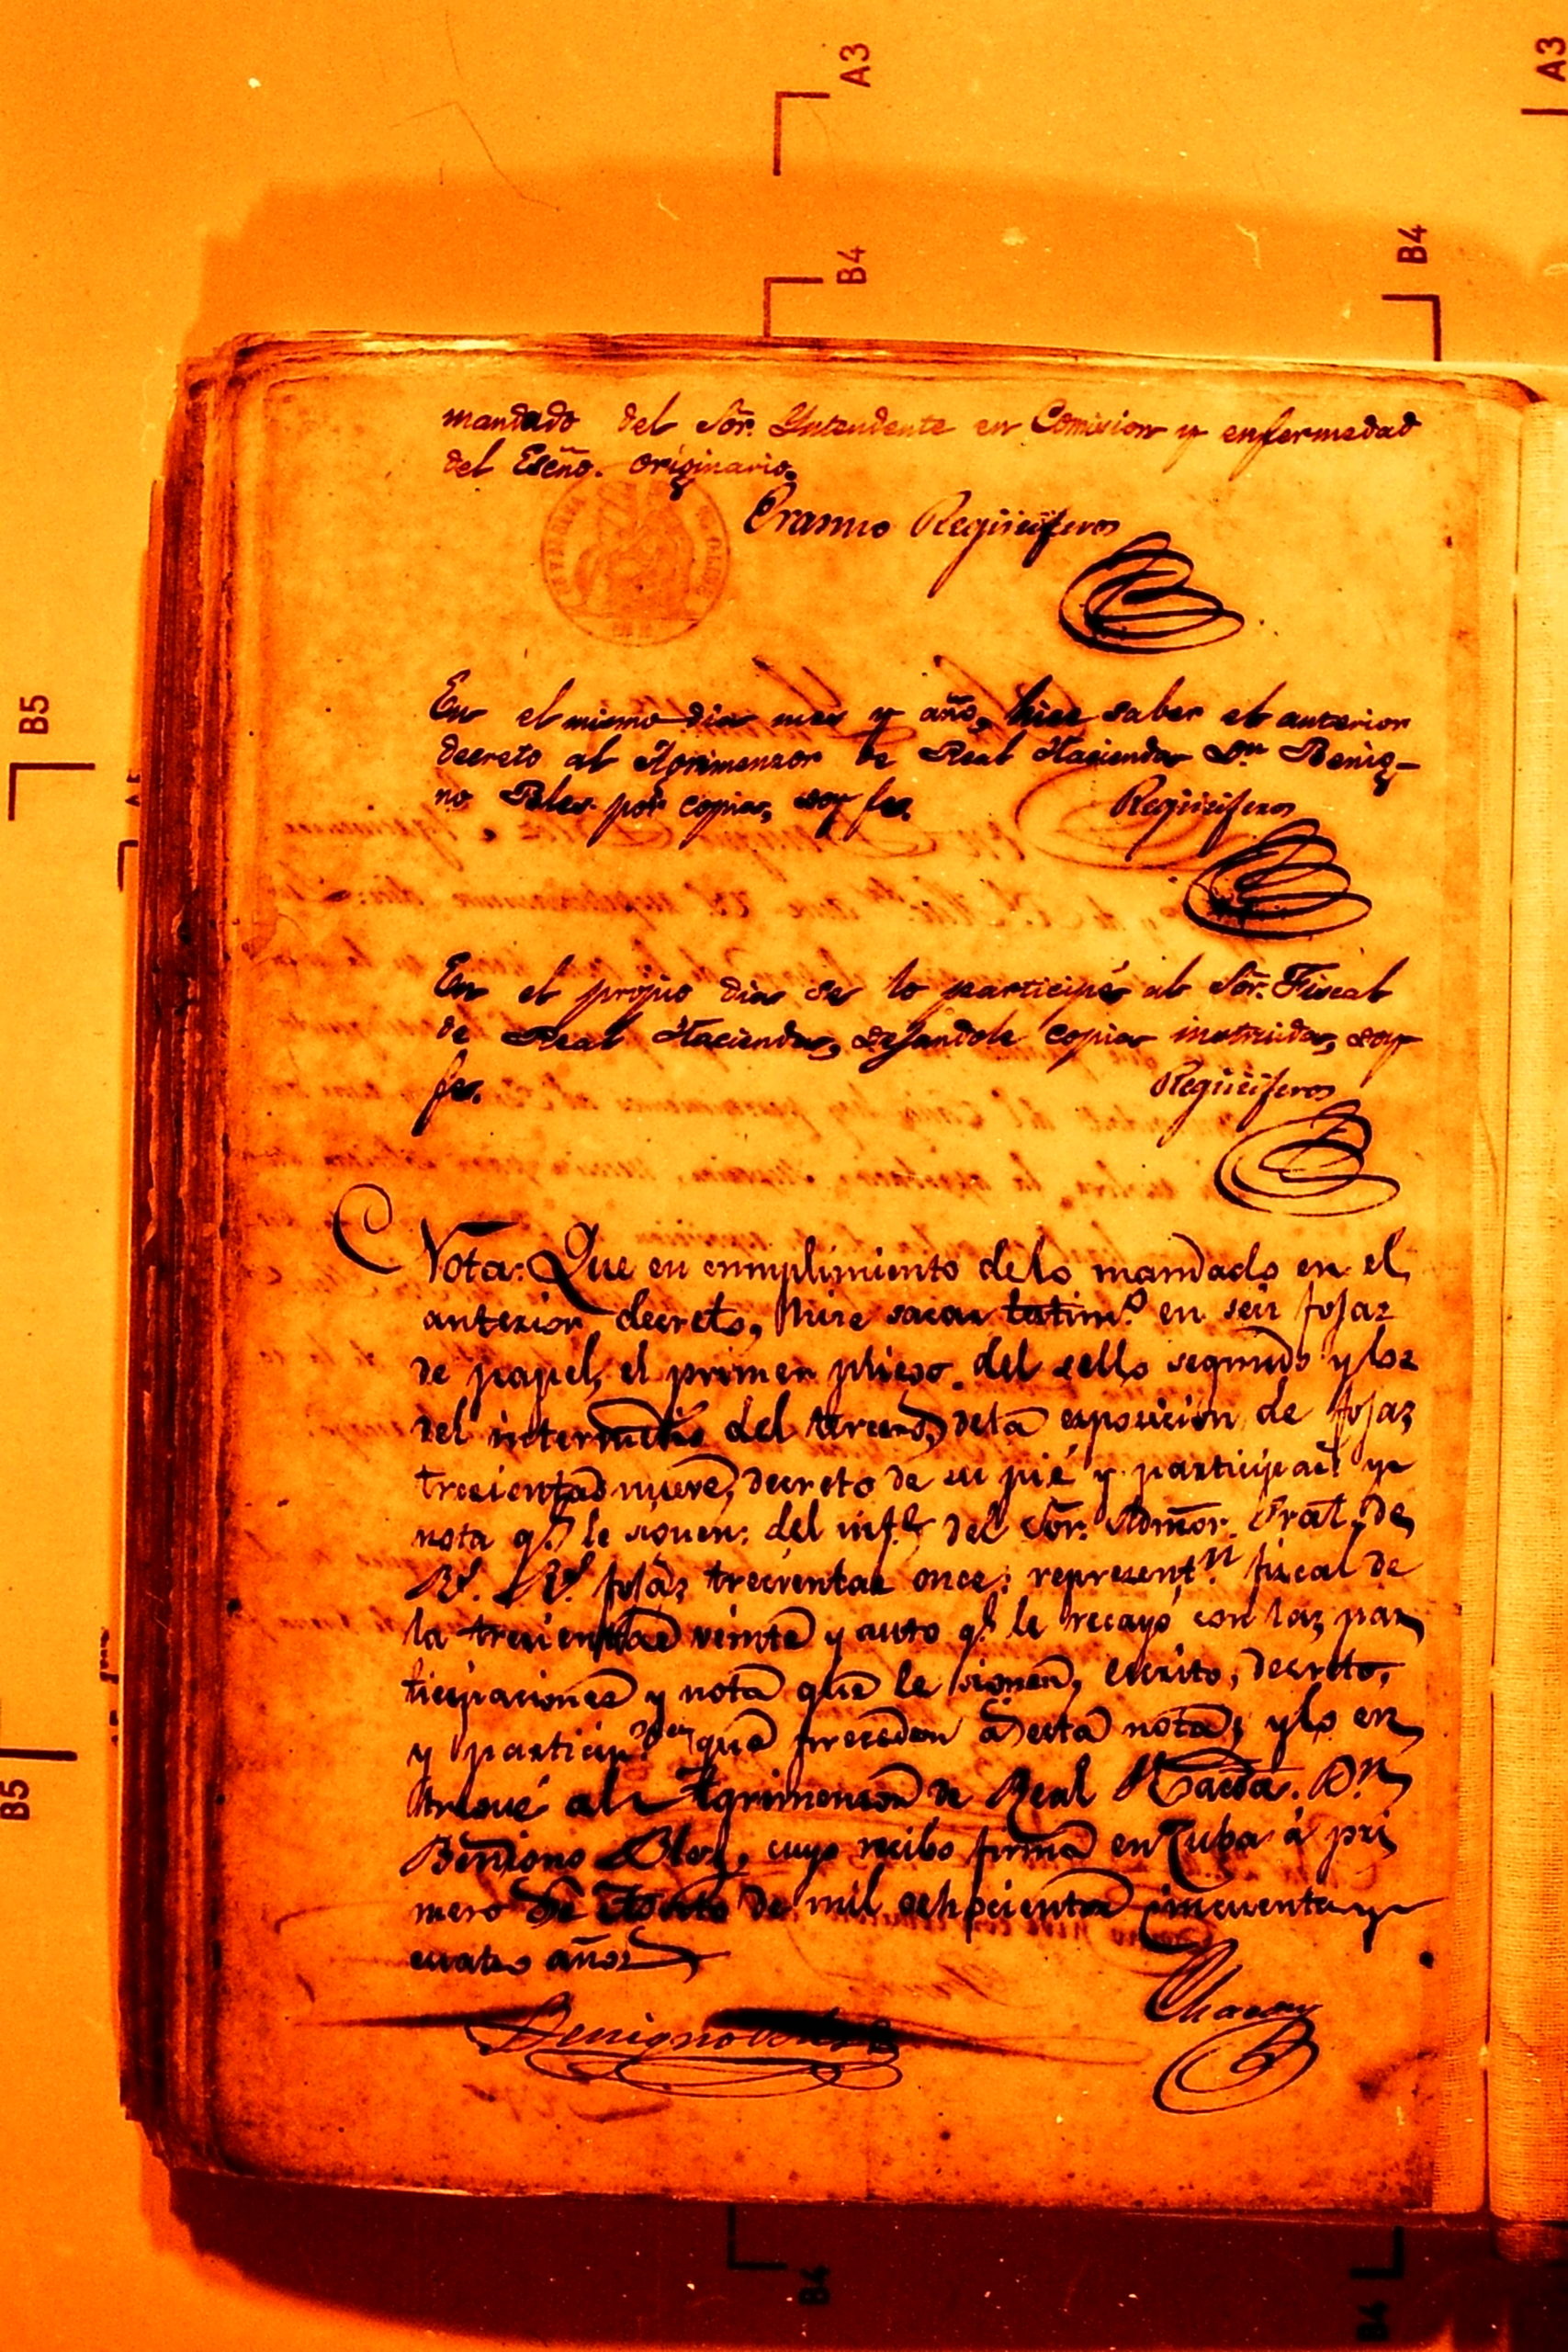 A3
A3
B4
B4
mandado del Sōr. Yntendente en Comision y enfermedad
del Escño. originario.
Erasmo Regüeiferos
En el mismo dia mes y año, hice saber el anterior
B5
decreto al Agrimensor de Real Hacienda Dn. Benig-
no Bles por copia, doy fe.
Regüeiferos
En el propio dia se lo participé al Sōr. Fiscal
de Real Hacienda, dejandole copia instruida, doy
fe.
Regüeiferos
Nota: Que en cumplimiento delo mandado en el
anterior decreto, hice sacar testimo. en seis fojas
de papel, el primer pliego del sello segundo y los
del intermedio del tercero, dela esposicion de fojas
trecientas nueve, decreto de su pié y participas. y
nota qe. le siguen: del infe. del Sōr. Admōr. Gral. de
Rs. Rs. fojas trecientas once: representn. fiscal de
la trecientas veinte y auto qe. le recayó con las par
ticipaciones y nota que le siguen, escrito, decreto,
y particip.nes que preceden á esta nota; y lo en
tregué al Agrimensor de Real Hacda. Dn.
B5
Benigno Bles, cuyo recibo firma en Cuba á pri
mero de Agosto de mil ochocientos cincuenta y
cuatro años
Benigno Bles
B4
B4